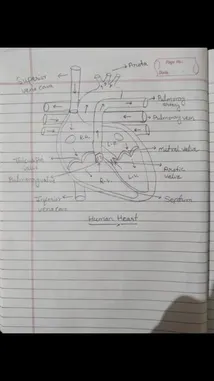 Page No.
Date
Aorta
Superior
vena cava
Pulmonary
artery
Pulmonary vein
R.A
L.A
Mitral valve
Tricuspid
valve
Aortic
valve
Pulmonary valve
R.V
L.V
Septum
Inferior
vena cava
Human Heart